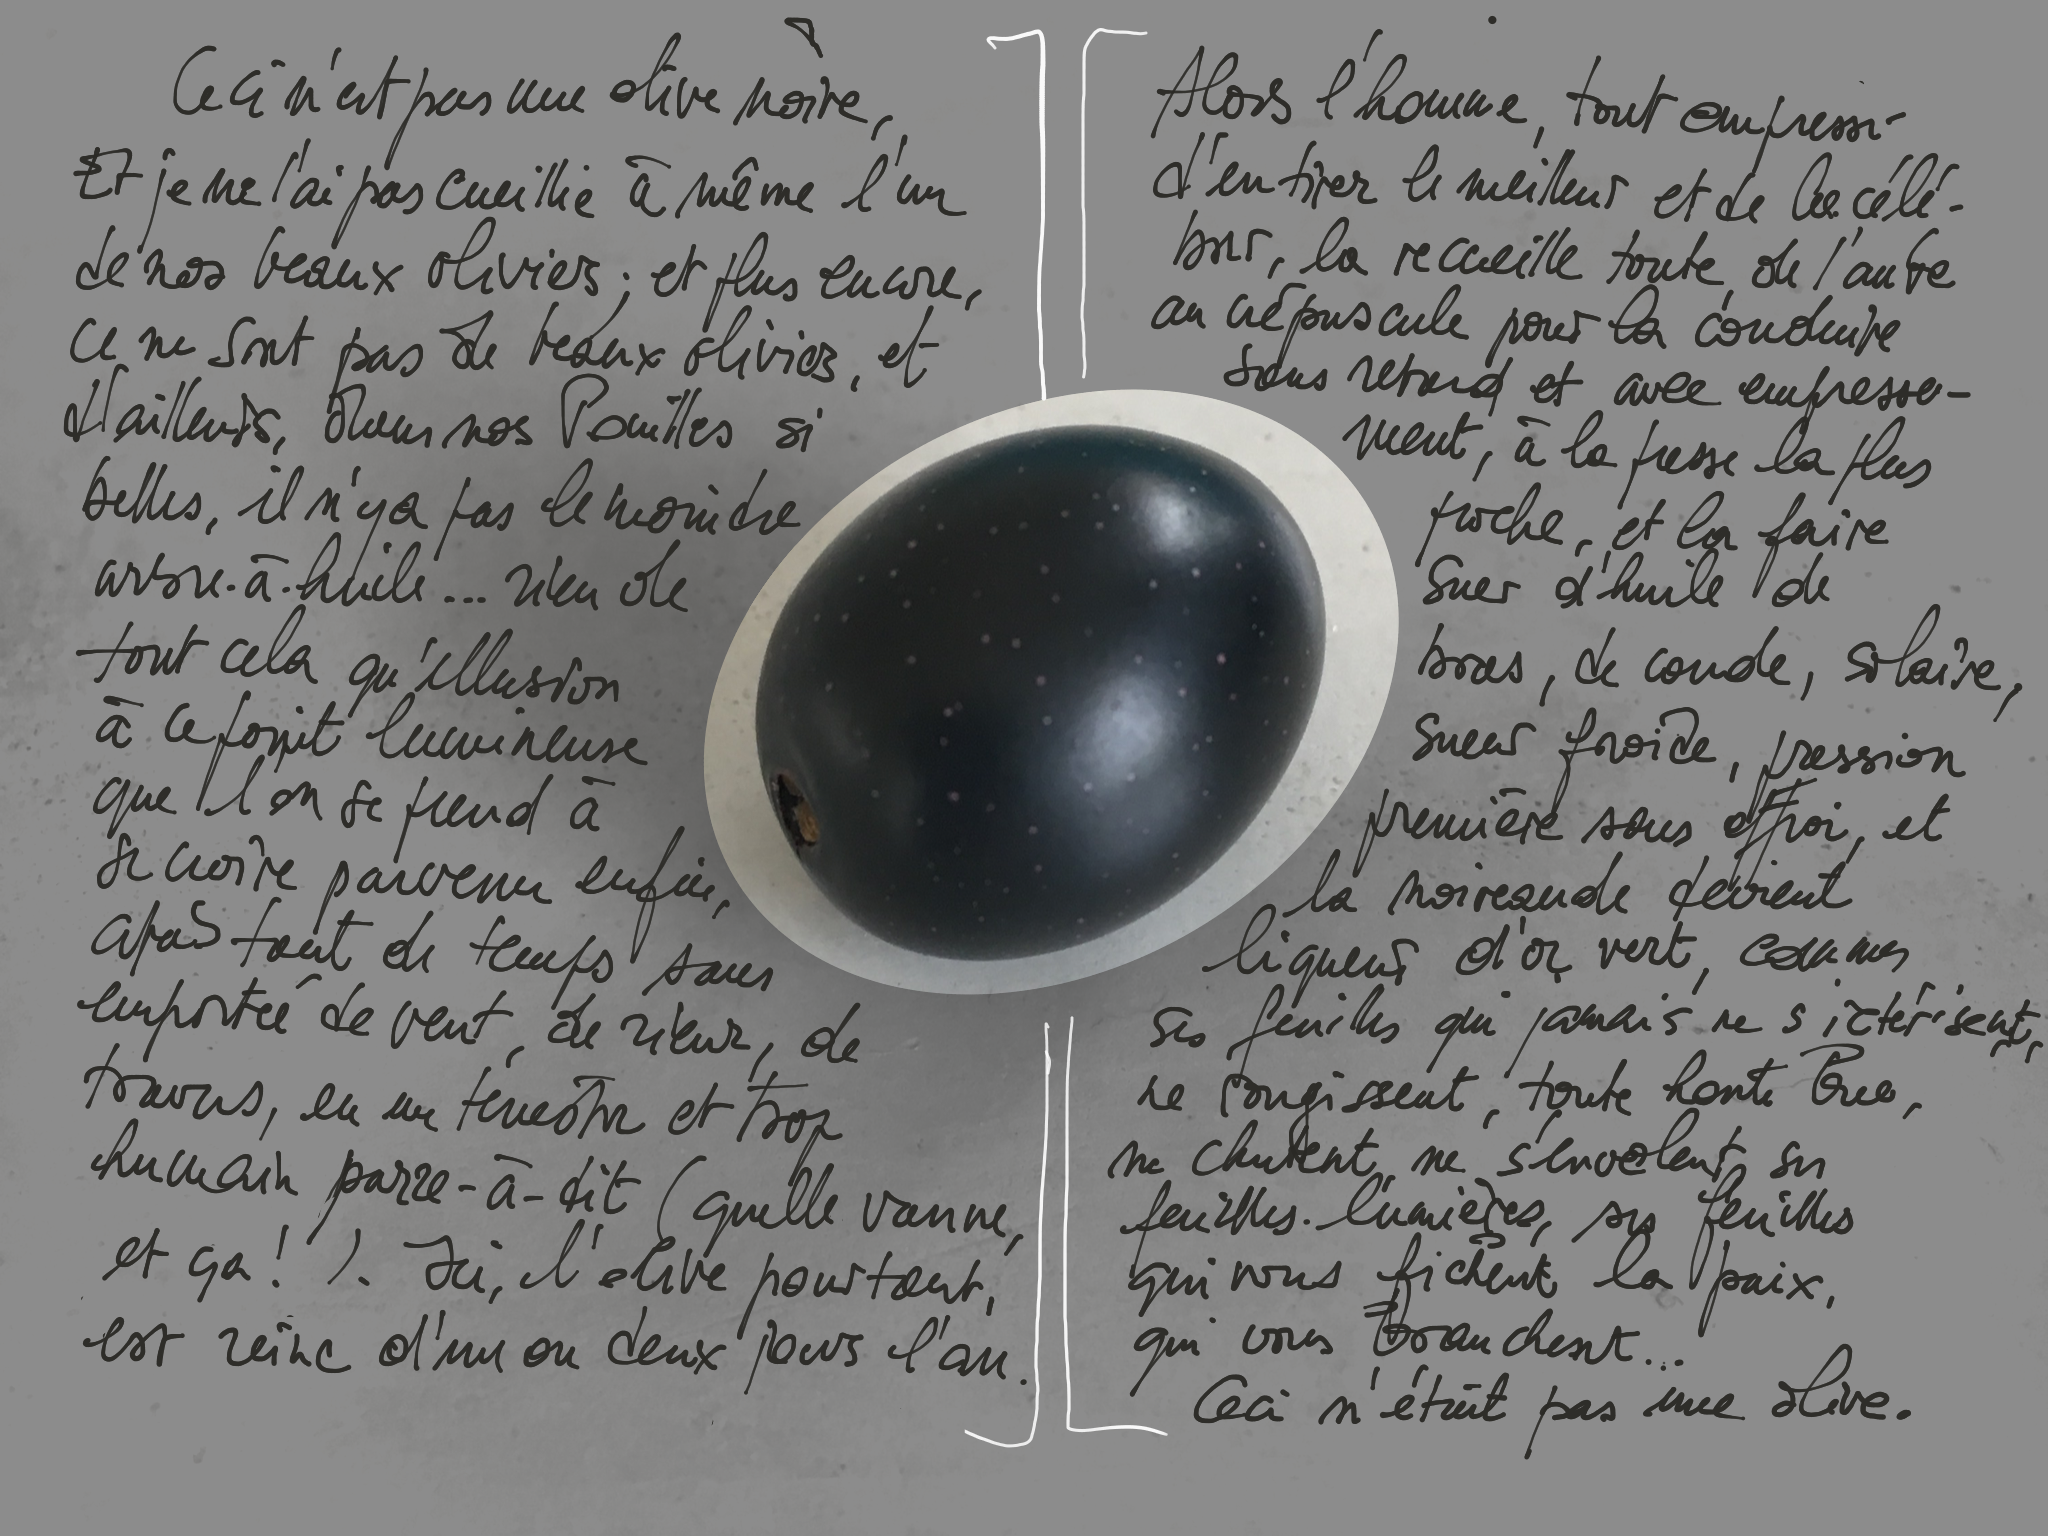 Ceci n'est pas une olive noire,
Et je ne l'ai pas cueillie à même l'un
de nos beaux oliviers ; et plus encore,
ce ne sont pas de beaux oliviers, et
d'ailleurs, dans nos Pouilles si
belles, il n'y a pas le moindre
arbre-à-huile... rien de
tout cela qu'illusion
à ce point lumineuse
que l'on se prend à
se croire parvenu enfin,
après tant de temps sans
emportée de vent, de rieur, de
travers, en un fenestre et trop
humain parre-à-dit (quelle vanne,
et ça ! ). Ici, l'olive pourtant,
est reine d'un ou deux jours l'an.
Alors l'homme, tout empressé
d'en tirer le meilleur et de la célé-
brer, la recueille toute, de l'aube
au crépuscule pour la conduire
sans retard et avec empresse-
ment, à la presse la plus
proche, et la faire
suer d'huile de
bras, de coude, solaire,
sueur froide, pression
première sans effroi, et
la noireaude devient
liqueur d'or vert, comme
ses feuilles qui jamais ne s'ictérisent,
ne rougissent, toute honte bue,
ne chutent, ne s'envolent, ses
feuilles-lumières, ses feuilles
qui vous fichent la paix,
qui vous branchent...
Ceci n'était pas une olive.